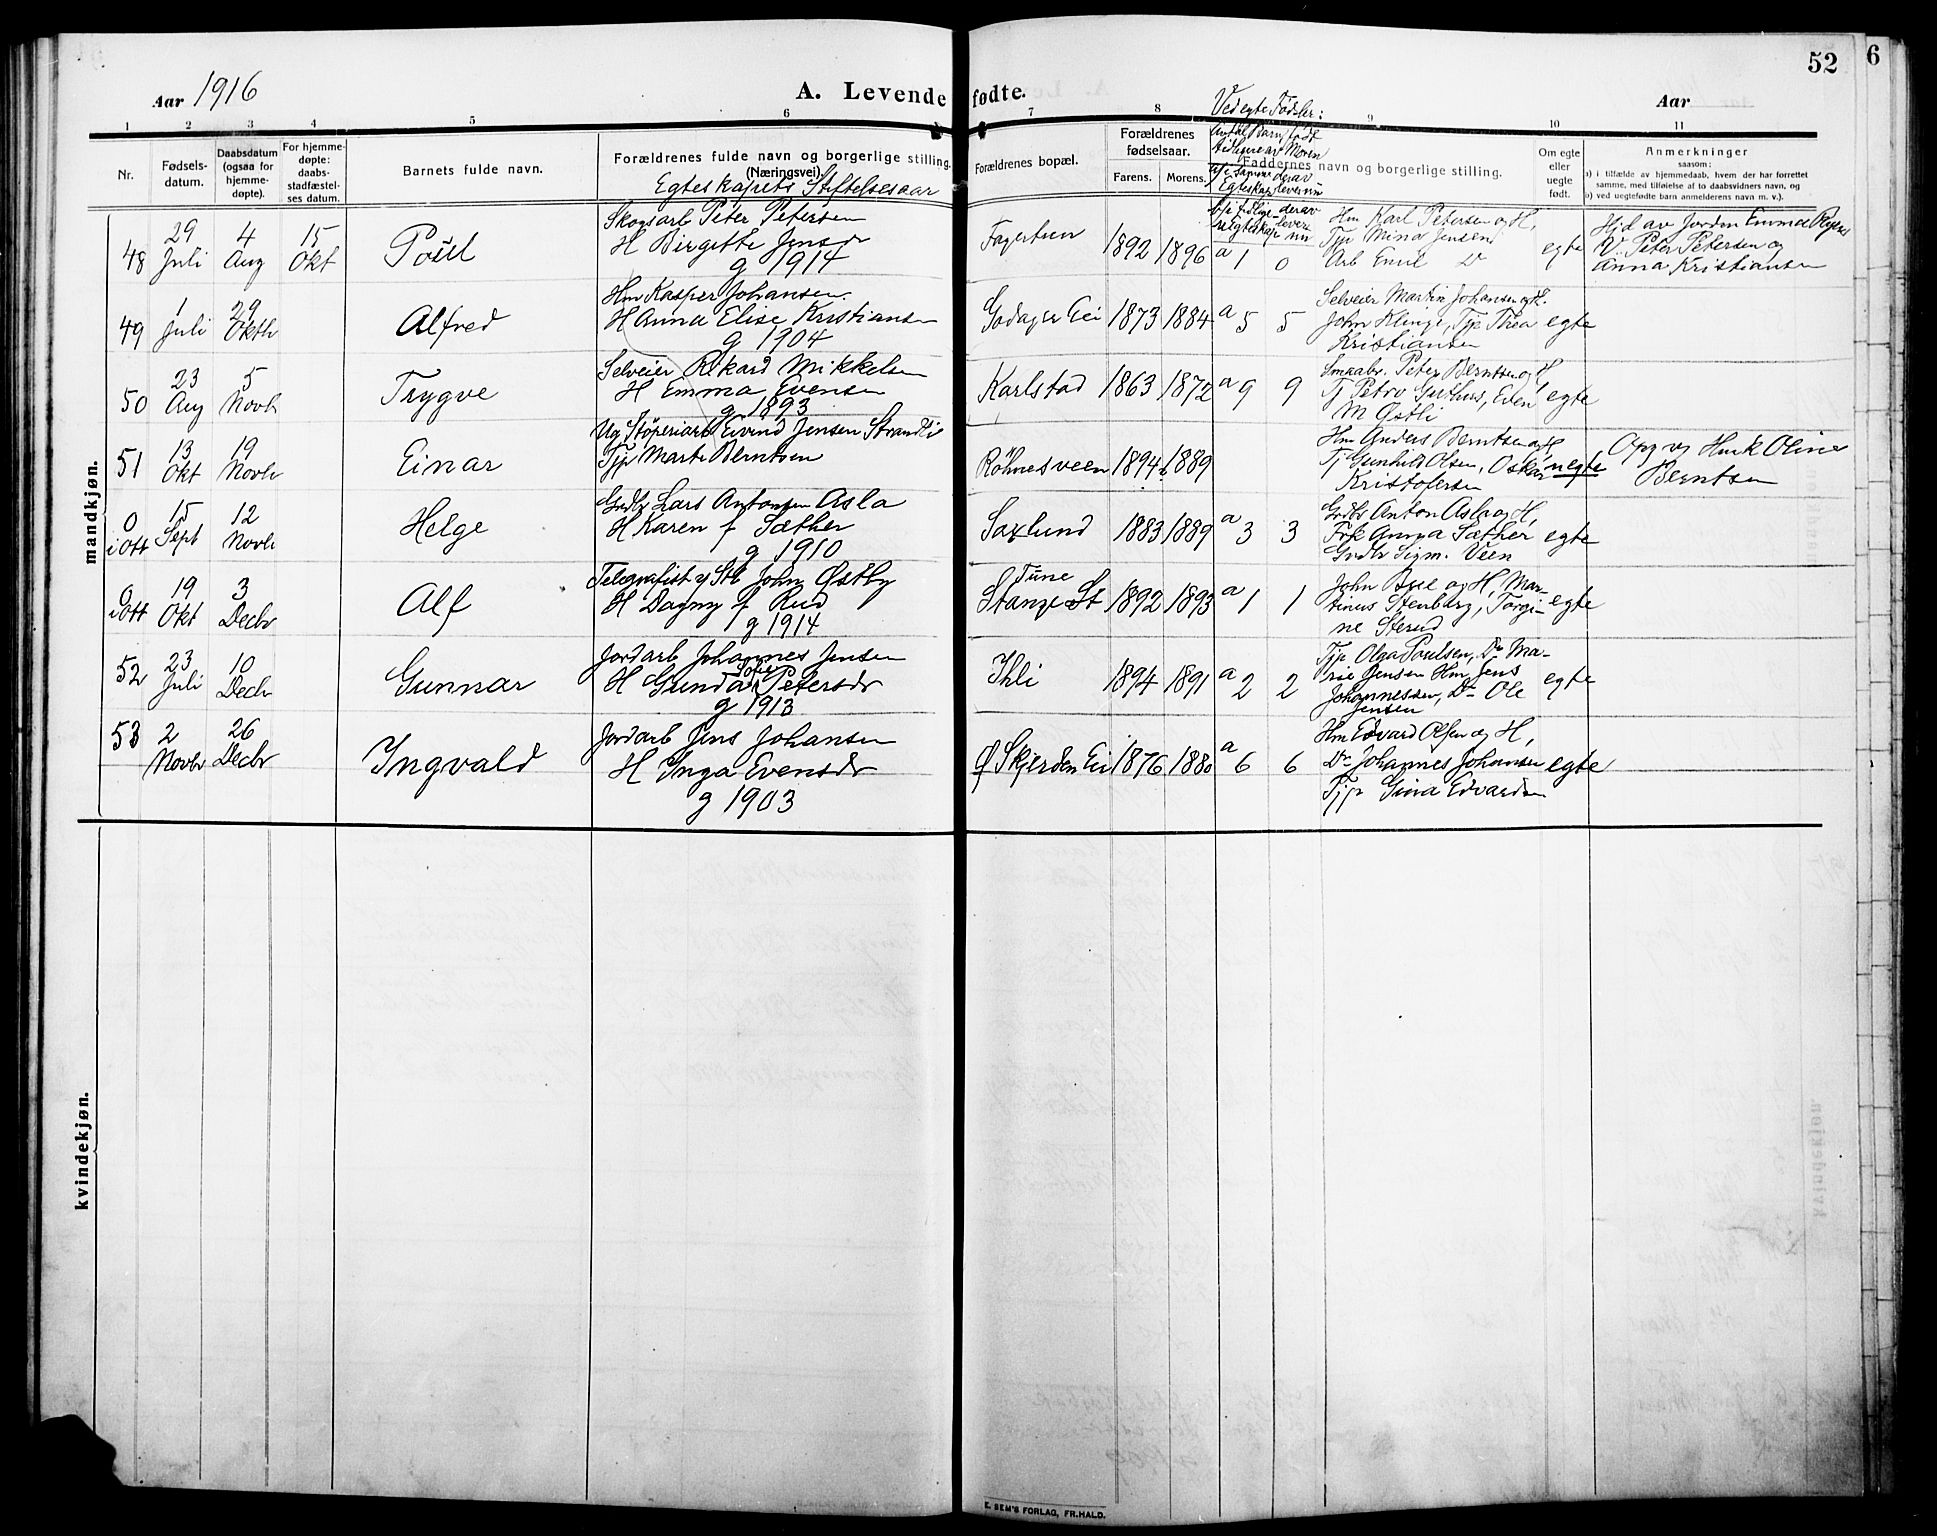 52
6
Aar 1916
A. Levende fødte.
Aar
Ved egte Fødsler:
1 2 3 4 5 6 7 8 9 10 11
Nr.
Fødsels-
datum.
Daabsdatum
(ogsaa for
hjemme-
døpte).
For hjemme-
døpte:
daabs-
stadfæstel-
ses datum.
Barnets fulde navn.
Forældrenes fulde navn og borgerlige stilling.
(Næringsvei).
Egteskapets Stiftelsesaar
Forældrenes bopæl.
Forældrenes
fødselsaar.
Farens. Morens.
Antal Barn født
tidligere av Moren
Faddernes navn og borgerlige stilling.
Om egte
eller
uegte
født.
Anmerkninger
saasom:
a) i tilfælde av hjemmedaab, hvem der har forrettet
samme, med tilføielse af to daabsvidners navn, og
b) ved uegtefødte barn anmelderens navn m. v.).
mandkjøn.
48
29 Juli
4 Aug
15 Okt
Poul
Skogsarb Peter Petersen
H Birgitte Jensdr
g 1914
1892 1896 a 1 0
Hm Karl Petersen og H,
Tjp Mina Jensen
Arb Emil Do
egte
Hjd av Jordm Emma
V. Peter Petersen og
Anna Kristiansen
49
1 Juli
29 Oktb
Alfred
Hm Kasper Johansen.
H Anna Elise Kristiansen
g 1904
Godager Eei
1873 1884 a 5 5
Selveier Martin Johansen og H.
John Klinge, Tjp Thea
Kristiansen
egte
50
23 Aug
5 Novbr
Trygve
Selveier Rikard Mikkelsen
H Emma Evensen
g 1893
Karlstad
1863 1872 a 9 9
Smaabr. Peter Berntsen og H
Tj Petro Guthus, Even
M Østli
egte
51
13 Okt
19 Novbr
Einar
Ug Støperiarb Eivind Jensen Strandli
Tjp Marte Berntsen
Röhnesveen
1894 1889
Hm Anders Berntsen og H,
Tj Gunhild Olsen, Oskar
Kristofersen
uegte
Opg v Husk Oline
Berntsen
0
i Ott
15 Sept
12 Novbr
Helge
Grdbr Lars Antonsen Asla
H Karen f Sæther
g 1910
Saxlund
1883 1889 a 3 3
Grdbr Anton Asla og H,
Frk Anna Sæther
Grdbr Sigm. Veen
egte
0
i Ott
19 Okt
3 Decbr
Alf
Telegrafist v Stb John Østby
H Dagny f Rud
g 1914
Tune
Stange St
1892 1893 a 1 1
John Bue og H, Mar-
tinus Stenberg, Torgi-
ne Sterud
egte
52
23 Juli
10 Decbr
Gunnar
Jordarb Johannes Jensen
H Gunda Sofie Petersdr
g 1913
Ihli
1894 1891 a 2 2
Tjp Olga Poulsen, Do Ma-
rie Jensen Hm Jens
Johannessen, Do Ole
Jensen
egte
53
2 Novbr
26 Decbr
Ingvald
Jordarb Jens Johansen
H Inga Evensdr
g 1903
Ø Skjerden Ei
1876 1880 a 6 6
Hm Edvard Olsen og H,
Do Johannes Johansen
Tjp Gina Edvardsen
egte
kvindekjøn.
E. SEM'S FORLAG, FR.HALD.